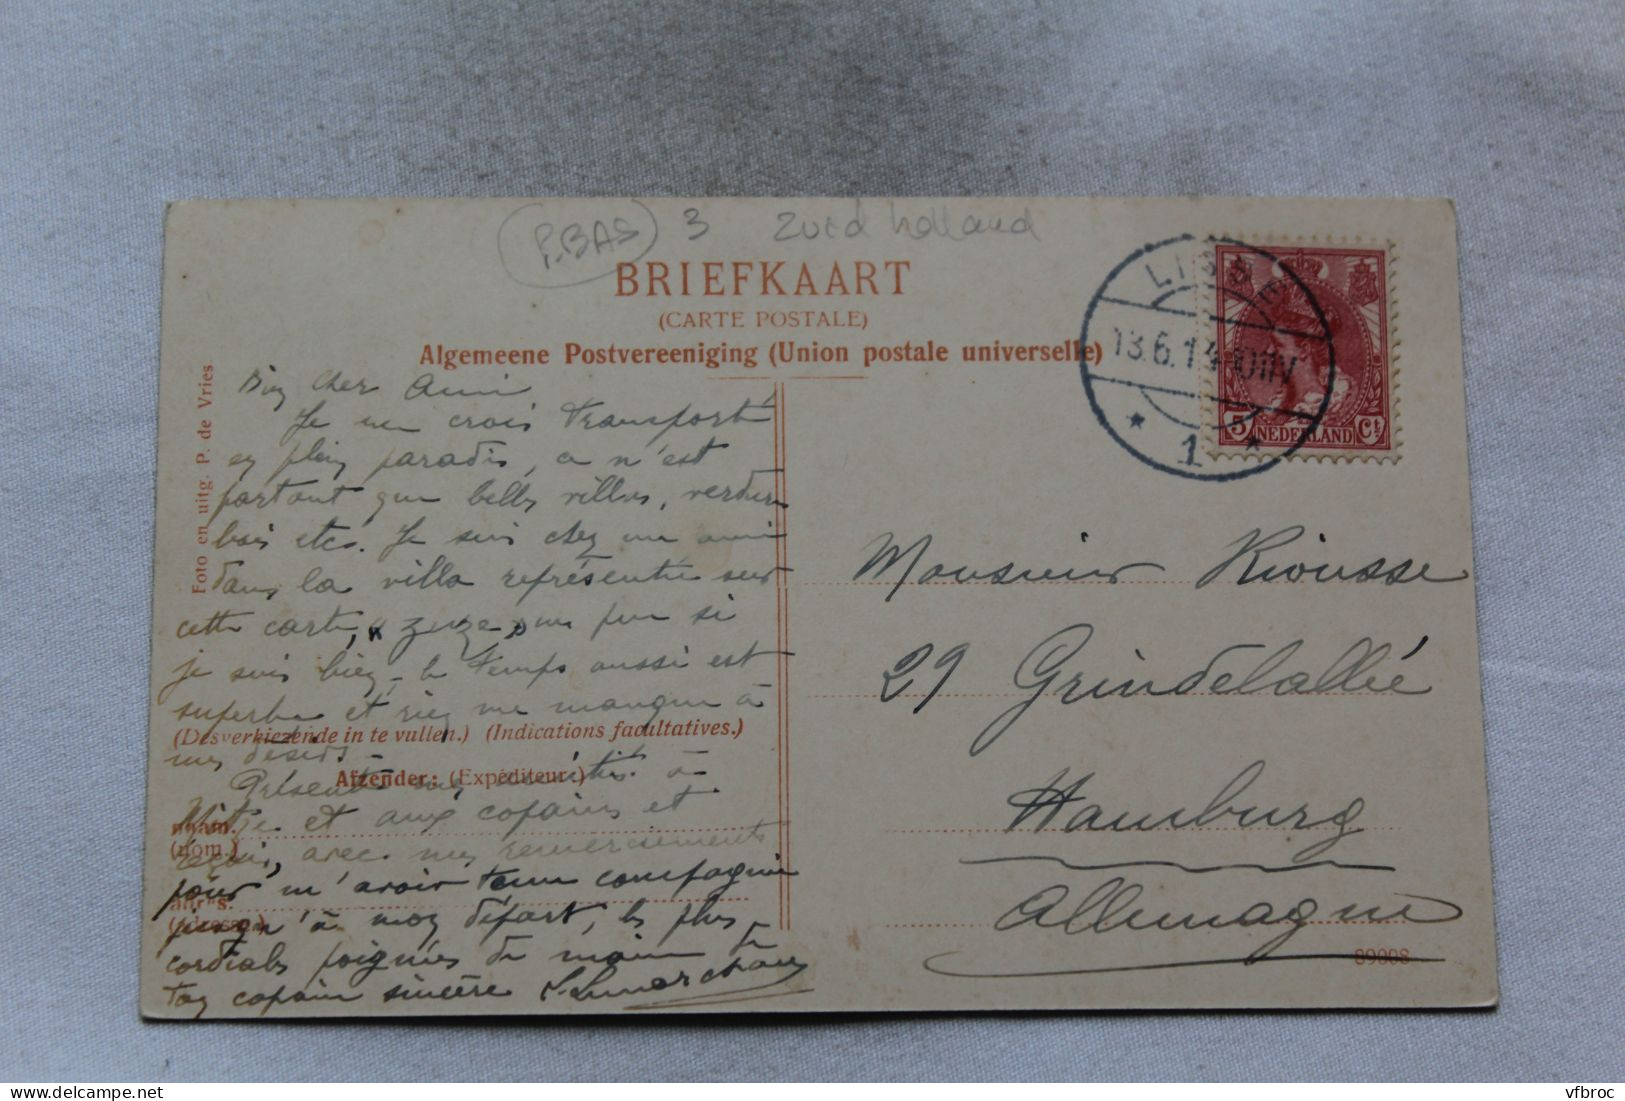 P.BAS 3 Zuid holland
BRIEFKAART
(CARTE POSTALE)
Algemeene Postvereeniging (Union postale universelle)
LISSE
13.6.14 10-11V
1
5 NEDERLAND Ct
Foto en uitg. P. de Vries
Bien cher Ami
Je me crois transporté
en plein paradis, ce n'est
partout que belles villas, verdure
bois etc. Je suis chez un ami
dans la villa représentée sur
cette carte, "zuze" un peu si
je suis bien, le temps aussi est
superbe et rien ne manque à
mes désirs.
(Desverkiezende in te vullen.) (Indications facultatives.)
Afzender: (Expéditeur:)
Présente mes amitiés à
et aux copains et
naam.
(nom.)
avec mes remerciements
pour m'avoir tenu compagnie
adres.
(adresse.)
jusqu'à mon départ, les plus
cordiales poignées de main de
ton copain sincère
Monsieur Riousse
29 Grindelallée
Hamburg
Allemagne
89008
vfbroc